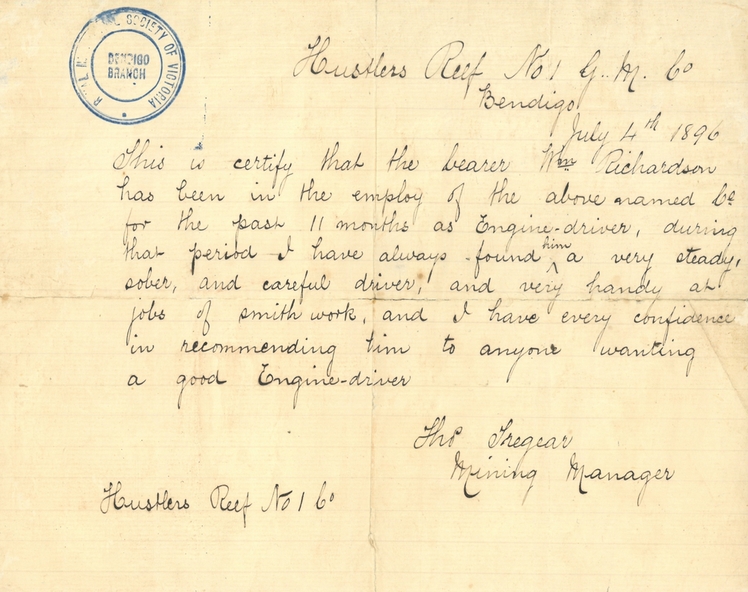 SOCIETY OF VICTORIA
BENDIGO
BRANCH
Hustlers Reef No 1 G. M. Co
Bendigo
July 4th 1896
This is certify that the bearer Wm Richardson
has been in the employ of the above named Co
for the past 11 months as Engine-driver, during
that period I have always found him a very steady,
sober, and careful driver, and very handy at
jobs of smith work, and I have every confidence
in recommending him to anyone wanting
a good Engine-driver
Thos Tregear
Mining Manager
Hustlers Reef No 1 Co